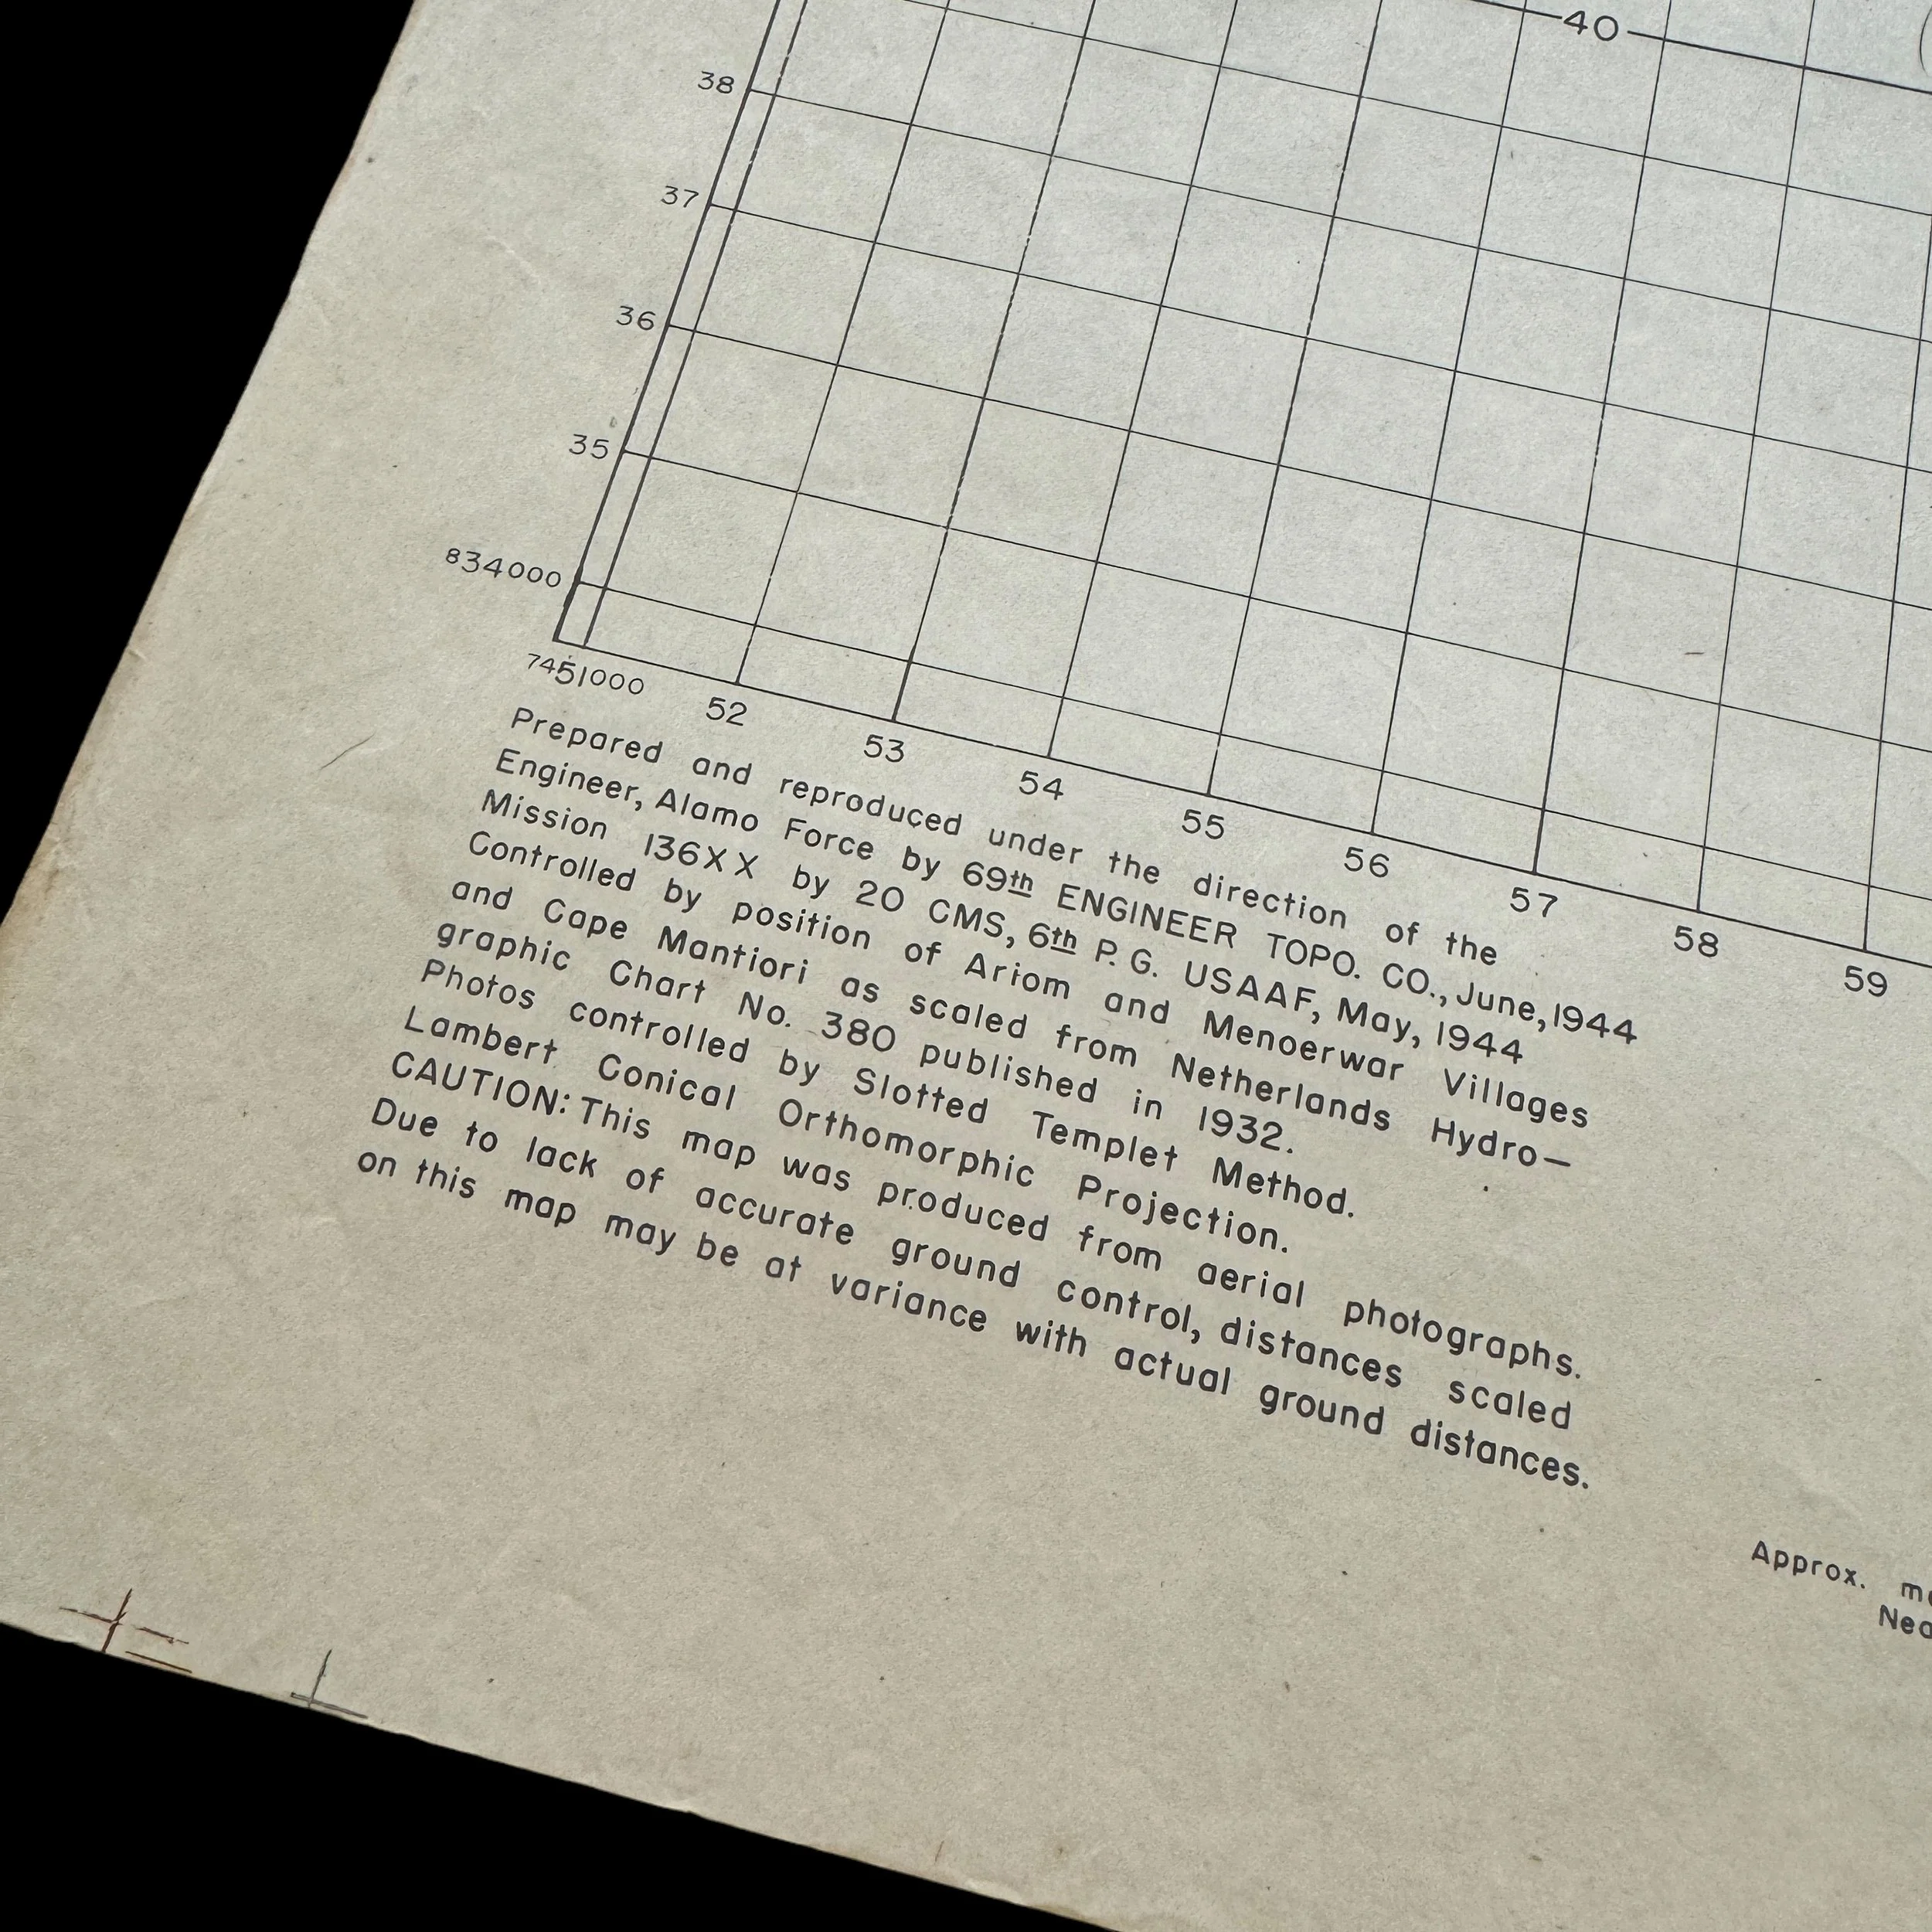 40
38
37
36
35
834000
7451000
52
53
54
55
56
57
58
59
Prepared and reproduced under the direction of the
Engineer, Alamo Force by 69th ENGINEER TOPO. CO., June, 1944
Mission 136XX by 20 CMS, 6th P. G. USAAF, May, 1944
Controlled by position of Ariom and Menoerwar Villages
and Cape Mantiori as scaled from Netherlands Hydro—
graphic Chart No. 380 published in 1932.
Photos controlled by Slotted Templet Method.
Lambert Conical Orthomorphic Projection.
CAUTION: This map was produced from aerial photographs.
Due to lack of accurate ground control, distances scaled
on this map may be at variance with actual ground distances.
Approx.